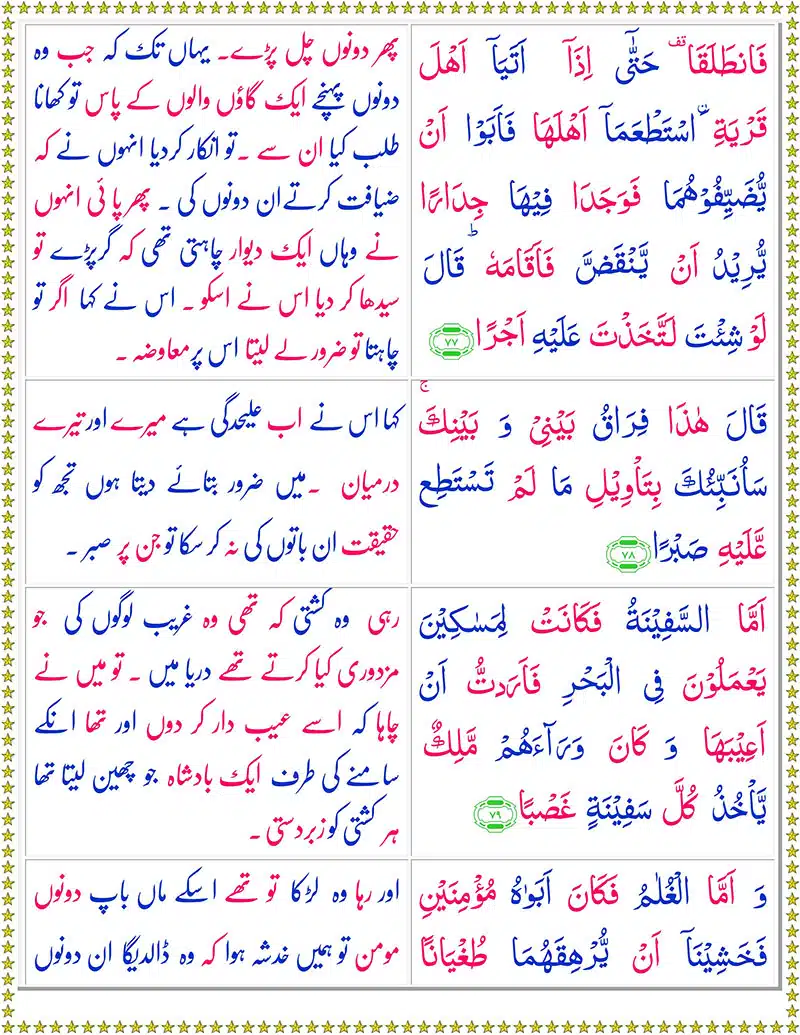 فَانطَلَقَا ۥقف حَتّٰٓى اِذَآ اَتَيَآ اَهْلَ
قَرْيَةِ ۨ اسْتَطْعَمَآ اَهْلَهَا فَاَبَوْا اَنْ
يُّضَيِّفُوْهُمَا فَوَجَدَا فِيْهَا جِدَارًا
يُّرِيْدُ اَنْ يَّنْقَضَّ فَاَقَامَهٗ ؕ قَالَ
لَوْ شِئْتَ لَتَّخَذْتَ عَلَيْهِ اَجْرًا ۷۷
پھر دونوں چل پڑے۔ یہاں تک کہ جب وہ
دونوں پہنچے ایک گاؤں والوں کے پاس تو کھانا
طلب کیا ان سے ۔ تو انکار کردیا انہوں نے کہ
ضیافت کرتے ان دونوں کی ۔ پھر پا ئی انہوں
نے وہاں ایک دیوار چاہتی تھی کہ گرپڑے تو
سیدھا کر دیا اس نے اسکو ۔ اس نے کہا اگر تو
چاہتا تو ضرور لے لیتا اس پر معاوضہ ۔
قَالَ هٰذَا فِرَاقُ بَيْنِيْ وَ بَيْنِكَ ۚ
سَاُنَبِّئُكَ بِتَاْوِيْلِ مَا لَمْ تَسْتَطِع
عَّلَيْهِ صَبْرًا ۷۸
کہا اس نے اب علیحدگی ہے میرے اور تیرے
درمیان ۔ میں ضرور بتائے دیتا ہوں تجھ کو
حقیقت ان باتوں کی نہ کر سکا تو جن پر صبر ۔
اَمَّا السَّفِيْنَةُ فَكَانَتْ لِمَسٰكِيْنَ
يَعْمَلُوْنَ فِى الْبَحْرِ فَاَرَدتُّ اَنْ
اَعِيْبَهَا وَ كَانَ وَرَآءَهُمْ مَّلِكٌ
يَّاْخُذُ كُلَّ سَفِيْنَةٍ غَصْبًا ۷۹
رہی وہ کشتی کہ تھی وہ غریب لوگوں کی جو
مزدوری کیا کرتے تھے دریا میں ۔ تو میں نے
چاہا کہ اسے عیب دار کر دوں اور تھا انکے
سامنے کی طرف ایک بادشاہ جو چھین لیتا تھا
ہر کشتی کو زبردستی ۔
وَ اَمَّا الْغُلٰمُ فَكَانَ اَبَوٰهُ مُؤْمِنَيْنِ
فَخَشِيْنَآ اَنْ يُّرْهِقَهُمَا طُغْيَانًا
اور رہا وہ لڑکا تو تھے اسکے ماں باپ دونوں
مومن تو ہمیں خدشہ ہوا کہ وہ ڈالدیگا ان دونوں